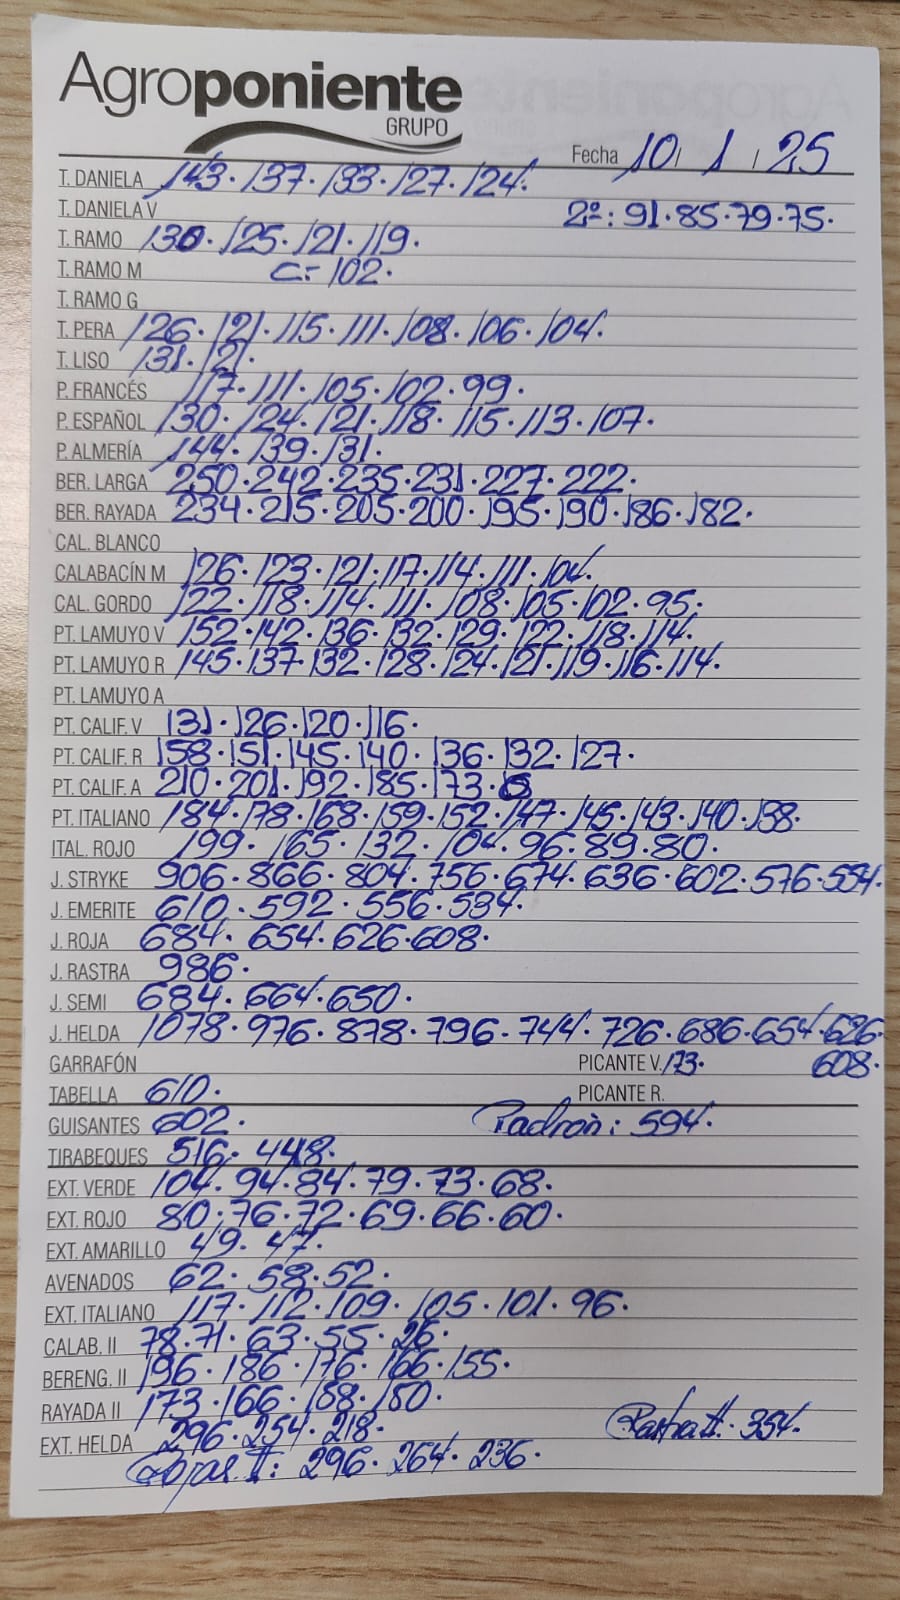 Agroponiente
GRUPO
Fecha 10 / 1 / 25
T. DANIELA 143. 137. 133. 127. 124.
T. DANIELA V 2º: 91. 85. 79. 75.
T. RAMO 130. 125. 121. 119.
T. RAMO M C.- 102.
T. RAMO G
T. PERA 126. 121. 115. 111. 108. 106. 104.
T. LISO 131. 121.
P. FRANCÉS 117. 111. 105. 102. 99.
P. ESPAÑOL 130. 124. 121. 118. 115. 113. 107.
P. ALMERÍA 144. 139. 131.
BER. LARGA 250. 242. 235. 231. 227. 222.
BER. RAYADA 234. 215. 205. 200. 195. 190. 186. 182.
CAL. BLANCO
CALABACÍN M 126. 123. 121. 117. 114. 111. 104.
CAL. GORDO 122. 118. 114. 111. 108. 105. 102. 95.
PT. LAMUYO V 152. 142. 136. 132. 129. 122. 118. 114.
PT. LAMUYO R 145. 137. 132. 128. 124. 121. 119. 116. 114.
PT. LAMUYO A
PT. CALIF. V 131. 126. 120. 116.
PT. CALIF. R 158. 151. 145. 140. 136. 132. 127.
PT. CALIF. A 210. 201. 192. 185. 173.
PT. ITALIANO 184. 178. 168. 159. 152. 147. 145. 143. 140. 138.
ITAL. ROJO 199. 165. 132. 104. 96. 89. 80.
J. STRYKE 906. 866. 804. 756. 674. 636. 602. 576. 554.
J. EMERITE 610. 592. 556. 534.
J. ROJA 684. 654. 626. 608.
J. RASTRA 986.
J. SEMI 684. 664. 650.
J. HELDA 1078. 976. 878. 796. 744. 726. 686. 654. 626.
GARRAFÓN PICANTE V. 173. 608.
TABELLA 610. PICANTE R.
GUISANTES 602. Padron: 594.
TIRABEQUES 516. 448.
EXT. VERDE 104. 94. 84. 79. 73. 68.
EXT. ROJO 80. 76. 72. 69. 66. 60.
EXT. AMARILLO 49. 47.
AVENADOS 62. 58. 52.
EXT. ITALIANO 117. 112. 109. 105. 101. 96.
CALAB. II 78. 71. 63. 55. 26.
BERENG. II 196. 186. 176. 166. 155.
RAYADA II 173. 166. 158. 150.
EXT. HELDA 296. 254. 218. Rastra II. 354.
Rojas II: 296. 264. 236.